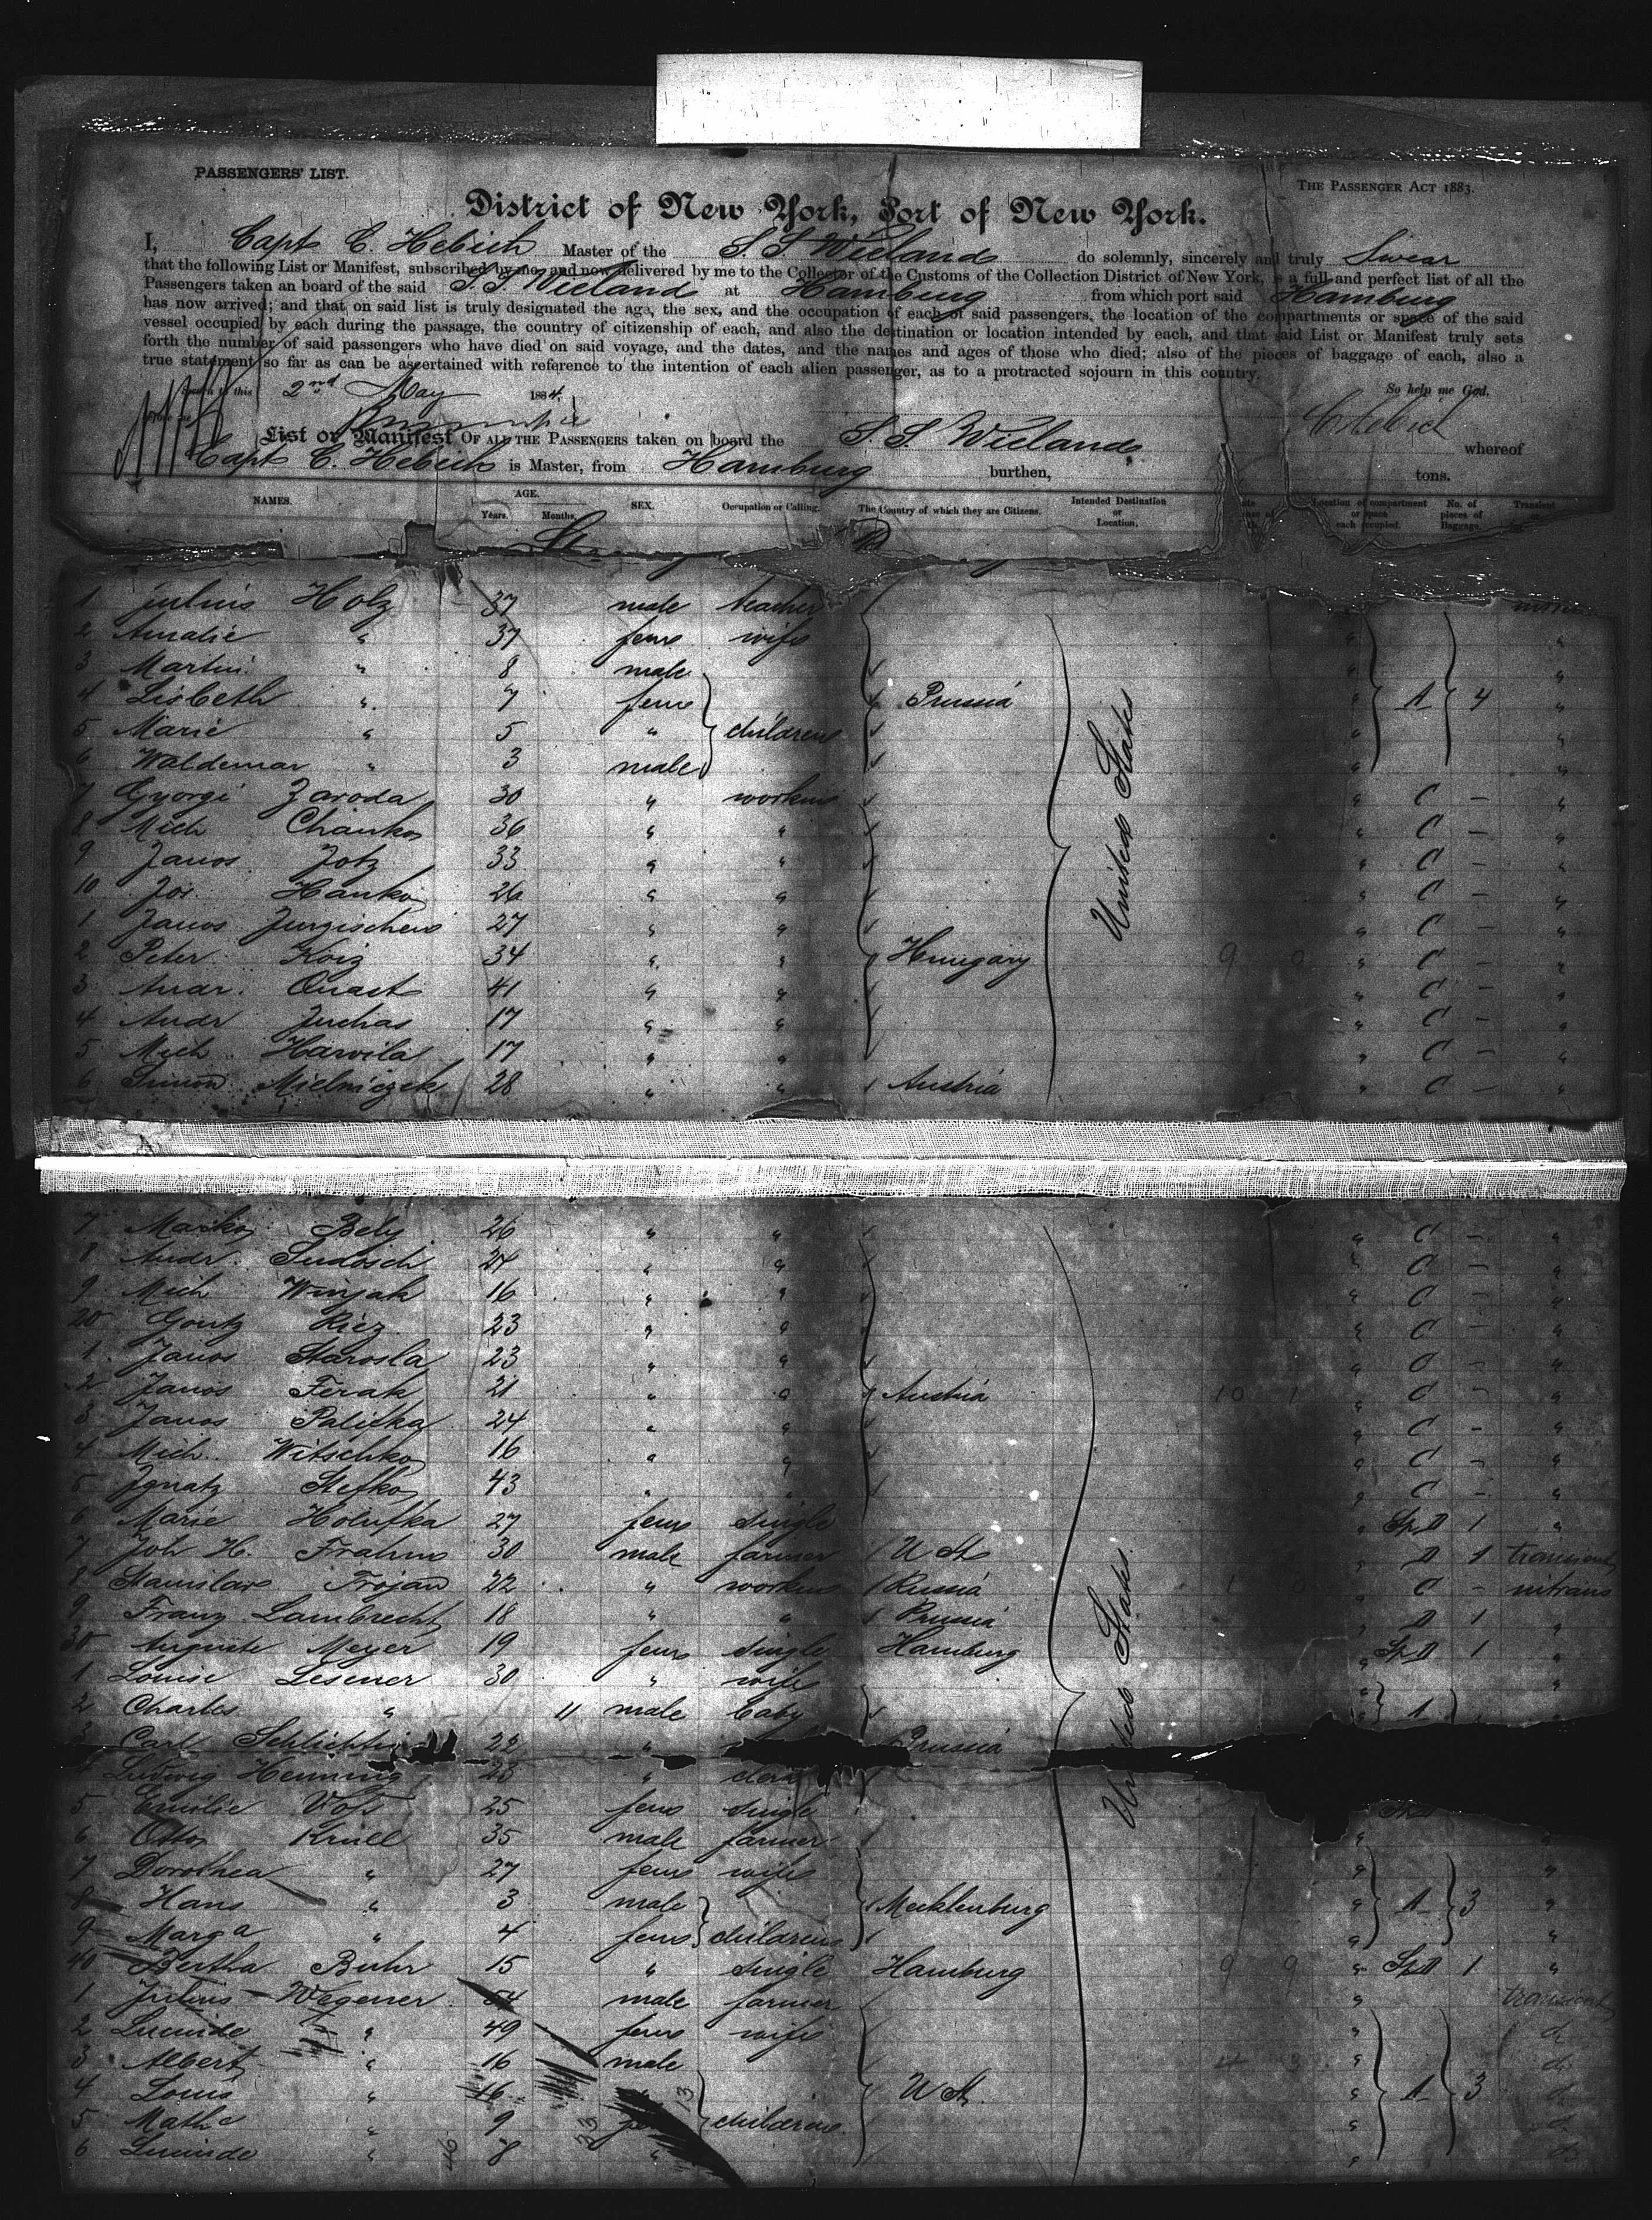 PASSENGERS' LIST.
THE PASSENGER ACT 1883.
District of New York, Port of New York.
I, Capt C. Hebich Master of the S. S Wieland do solemnly, sincerely and truly Swear
that the following List or Manifest, subscribed by me, and now delivered by me to the Collector of the Customs of the Collection District of New York, is a full and perfect list of all the
Passengers taken an board of the said S. S. Wieland at Hamburg from which port said Hamburg
has now arrived; and that on said list is truly designated the age, the sex, and the occupation of each of said passengers, the location of the compartments or space of the said
vessel occupied by each during the passage, the country of citizenship of each, and also the destination or location intended by each, and that said List or Manifest truly sets
forth the number of said passengers who have died on said voyage, and the dates, and the names and ages of those who died; also of the pieces of baggage of each, also a
true statement so far as can be ascertained with reference to the intention of each alien passenger, as to a protracted sojourn in this country.
So help me God.
Sworn to this 2nd May 1884.
C Hebich
List or Manifest OF ALL THE PASSENGERS taken on board the S. S Wieland whereof
Capt C. Hebich is Master, from Hamburg burthen, tons.
NAMES. AGE. Years. Months. SEX. Occupation or Calling. The Country of which they are Citizens. Intended Destination or Location. Location of compartment or space each occupied. No. of pieces of Baggage. Transient
1 Julius Holz 37 male teacher
2 Amalie " 37 fem wife "
3 Martin " 8 male "
4 Lisbeth " 7 fem Prussia " A 4 "
5 Marie " 5 " children "
6 Waldemar " 3 male "
7 Gyorgi Zaroda 30 " workm " C - "
8 Mich Chanko 36 " " " C - "
9 Janos Jotz 33 " " " C - "
10 Jos. Hanko 26 " " " C - "
1 Janos Jurgischen 27 " " " C - "
2 Peter Koiz 34 " " Hungary 9 0 " C - "
3 Andr. Quast 41 " " " C - "
4 Andr Juchas 17 " " " C - "
5 Mich Hawila 17 " " " C - "
6 Simon Mielniczek 28 " " Austria " C - "
United States
7 Marko Bely 26 " " " C - "
8 Andr. Sudosch 24 " " " C - "
9 Mich Winjak 16 " " " C - "
20 Gontz Kiez 23 " " " C - "
1 Janos Starosla 23 " " " C - "
2 Janos Ferak 21 " " Austria 10 1 " C - "
3 Janos Palitka 24 " " " C - "
4 Mich. Witschko 16 " " " C - "
5 Ignatz Stefko 43 " " " C - "
6 Marie Holufka 27 fem single " Sp. D 1 "
7 Joh H. Frahm 30 male farmer U St " D 1 transient
8 Stanislaw Trojan 22 " workm Russia 1 0 " C - nitrans
9 Franz Lambrecht 18 " " Prussia " D 1 "
30 Auguste Meyer 19 fem single Hamburg " Sp. D 1 "
1 Louise Lesener 30 " wife " "
2 Charles " 11 male baby " A
3 Carl 22 " Prussia
Ludwig Henning 23 " clerk
5 Emilie Voss 25 fem single
6 Otto Krull 35 male farmer " "
7 Dorothea " 27 fem wife " "
8 Hans " 3 male Mecklenburg " A 3 "
9 Marga " 4 fem children " "
40 Bertha Buhr 15 " single Hamburg 9 9 " Sp. D 1 "
1 Julius Wegener 54 male farmer " transient
2 Lucinde " 49 fem wife " do
3 Albert " 16 male 4 3 " do
4 Louis " 16 U St. " A 3 do
5 Mathe " 9 fem children " do
6 Lucinde " 8 " " do
United States
46 33 13